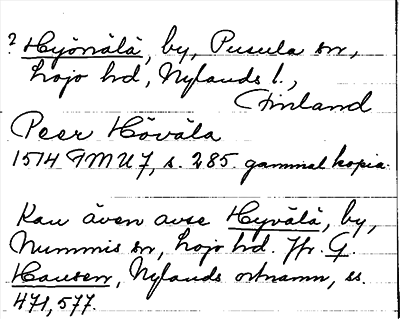 ? Hyönölä, by, Pusula sn,
Lojo hd, Nylands l.,
Finland
Peer Hövälä
1514 FMU 7, s. 285. gammal kopia.
Kan även avse Hyvälä, by,
Nummis sn, Lojo hd. Jfr G.
Hausen, Nylands ortnamn, ss.
471, 577.